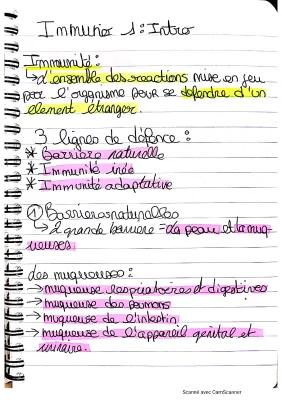 Immunior 1: Intro
Immunité:
↳ l'ensemble des reactions mise en jeu
par l'organisme pour se defendre d'un
element etranger.
3 lignes de défence:
* Barriere naturelle
* Immunité inée
* Immunité adaptative
① Barrieres naturelles
↳ 2 grande barriere = la peau et la muq-
ueuses
des muqueuses:
→ muqueuse respiratoires et digestives
→ muqueuse des poumons
→ muqueuse de l'intestin
→ muqueuse de l'appareil genital et
urinaire.
Scanné avec CamScanner